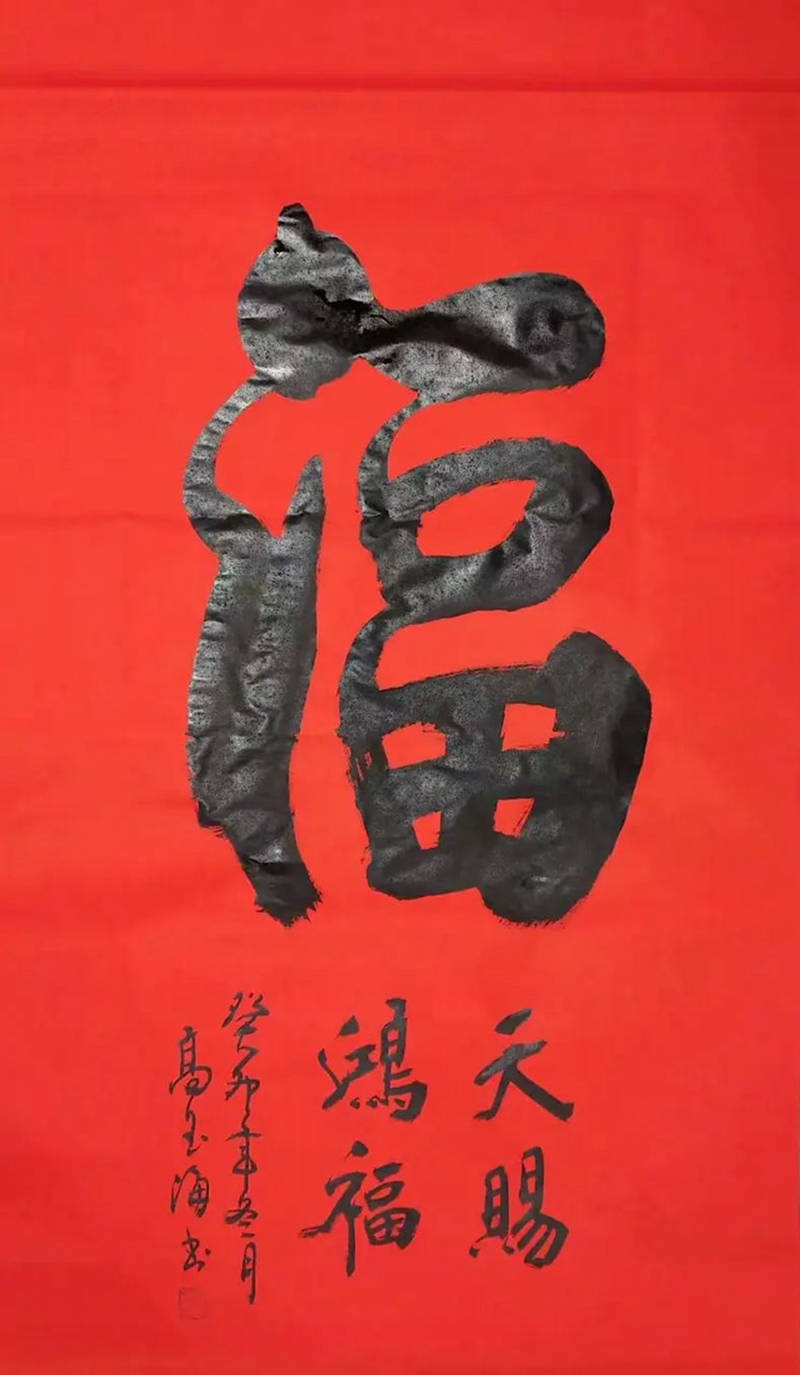 福
天賜
鴻福
癸卯年冬月
高玉海书